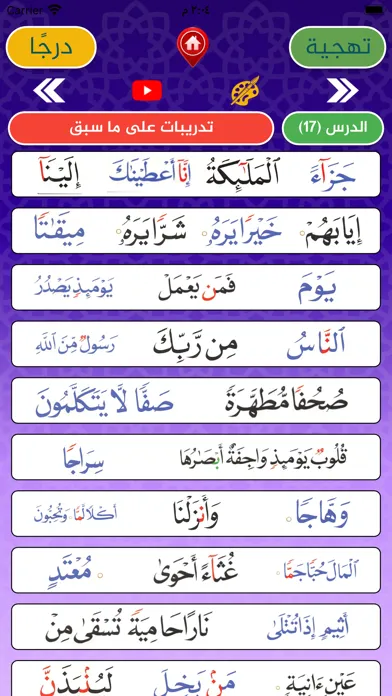 Carrier ٢:٠٤ م
تهجية درجًا
الدرس (17) تدريبات على ما سبق
جَزَآءً ٱلْمَلَٰٓئِكَةُ إِنَّآ أَعْطَيْنَٰكَ إِلَيْنَآ
إِيَابَهُمْ خَيْرًا يَرَهُۥ شَرًّا يَرَهُۥ مِيقَٰتًا
يَوْمَ فَمَن يَعْمَلْ يَوْمَئِذٍ يَصْدُرُ
ٱلنَّاسُ مِن رَّبِّكَ رَسُولٌ مِّنَ ٱللَّهِ
صُحُفًا مُّطَهَّرَةً صَفًّا لَّا يَتَكَلَّمُونَ
قُلُوبٌ يَوْمَئِذٍ وَاجِفَةٌ أَبْصَٰرُهَا سِرَاجًا
وَهَّاجًا وَأَنزَلْنَا أَكْلًا لَّمًّا وَتُحِبُّونَ
ٱلْمَالَ حُبًّا جَمًّا غُثَآءً أَحْوَىٰ مُعْتَدٍ
أَثِيمٍ إِذَا تُتْلَىٰ نَارًا حَامِيَةً تُسْقَىٰ مِنْ
عَيْنٍ ءَانِيَةٍ مَنۢ بَخِلَ لَيُنۢبَذَنَّ